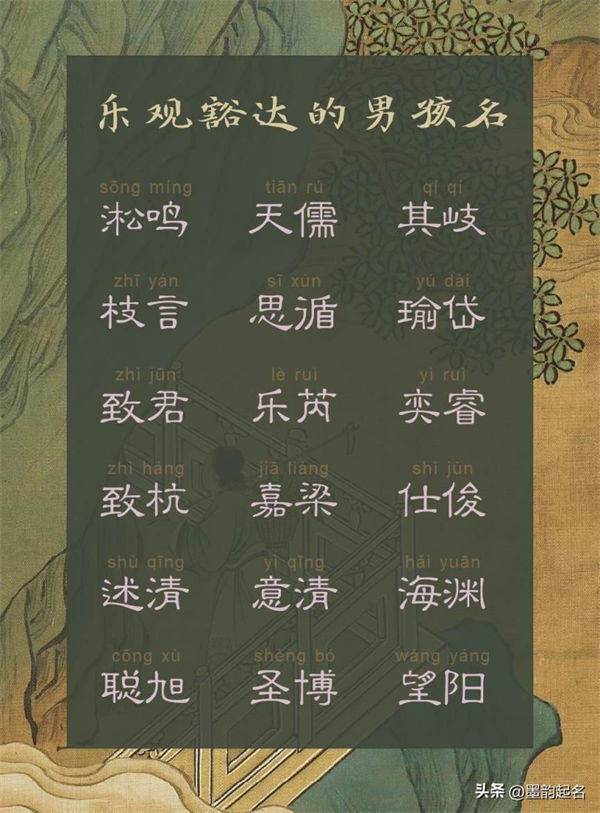 乐观豁达的男孩名
sōng míng tiān rú qí qí
淞鸣 天儒 其岐
zhī yán sī xún yú dài
枝言 思循 瑜岱
zhì jūn lè ruì yì ruì
致君 乐芮 奕睿
zhì háng jiā liáng shì jùn
致杭 嘉梁 仕俊
shù qīng yì qīng hǎi yuān
述清 意清 海渊
cōng xù shèng bó wàng yáng
聪旭 圣博 望阳
头条 @墨韵起名